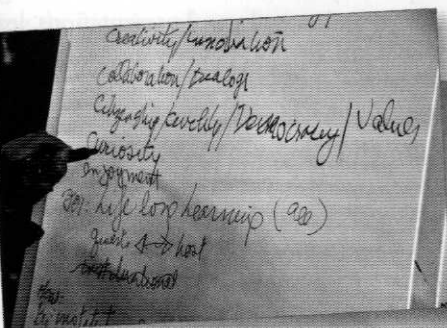 Creativity/innovation
Collaboration/Dialogs
Citizenship/civility/Democracy/Values
Curiosity
Enjoyment
Life long Learning (all)
guest ↔ host